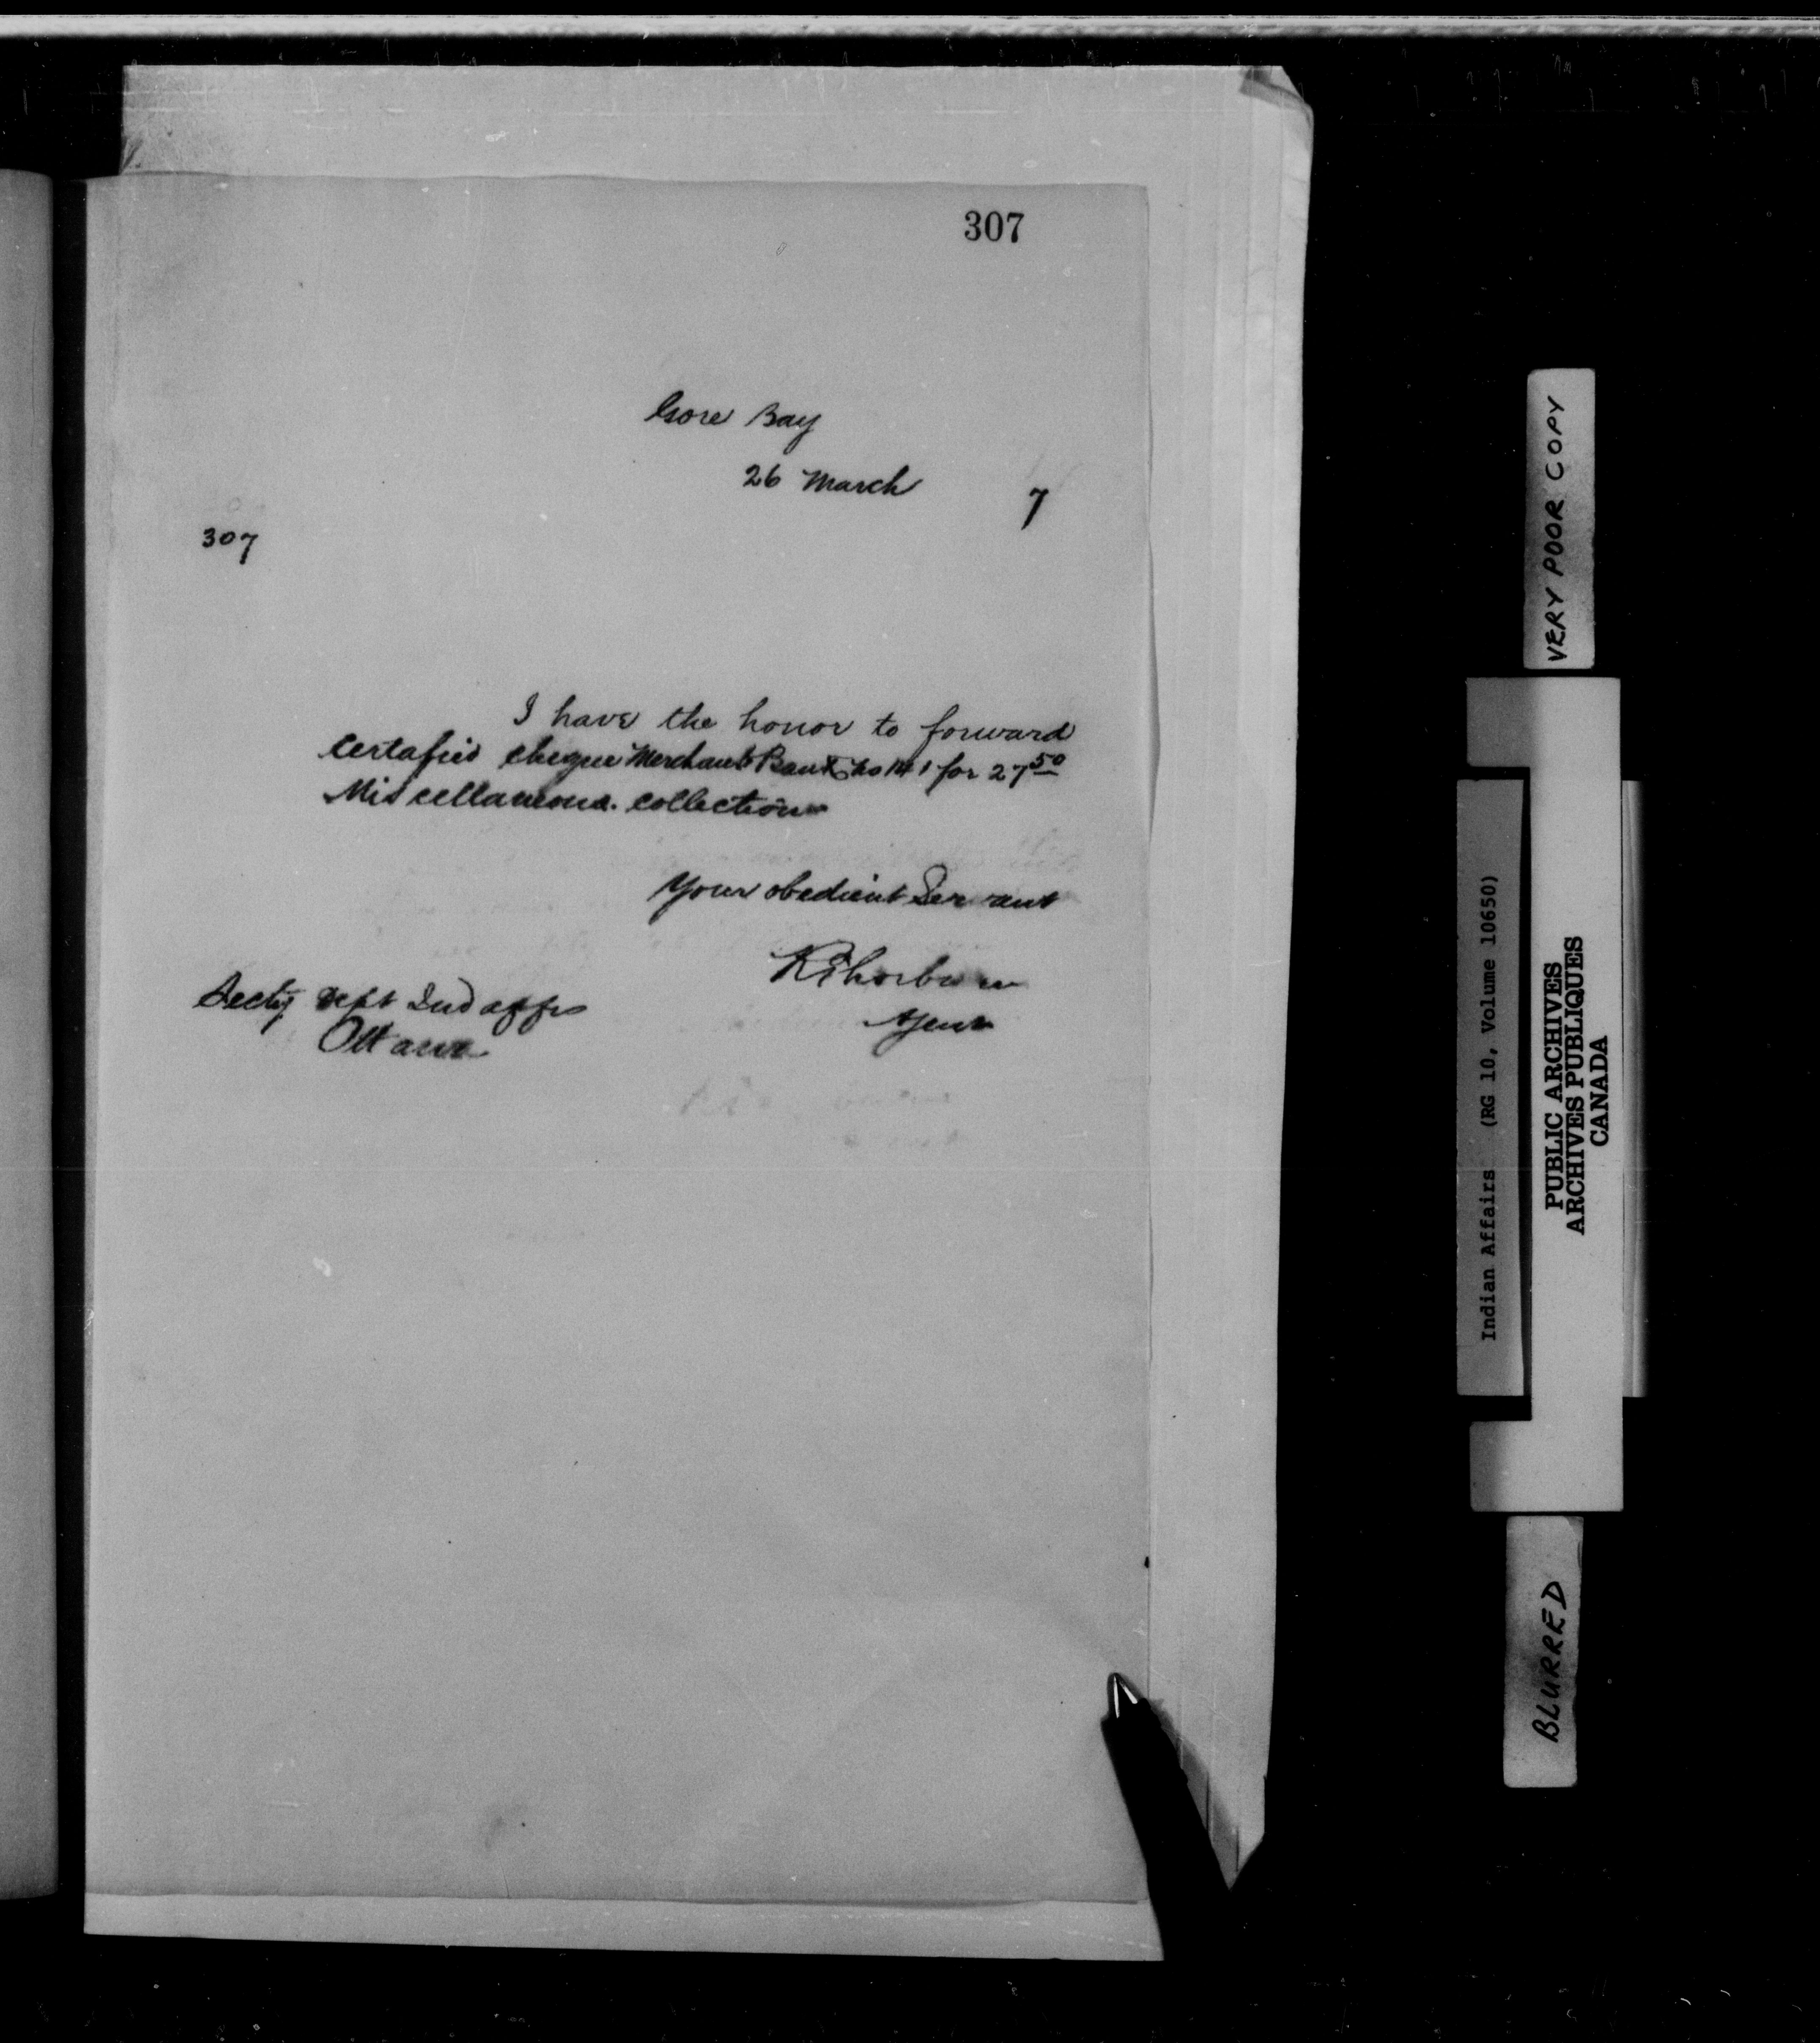 307
Gore Bay
26 March 7
307
I have the honor to forward
Certafied cheque Merchants Bank no 141 for 27 50
Miscellaneous. collection
Your obedient Servant
Agent
Secty Dept Ind affrs
Ottawa
VERY POOR COPY
Indian Affairs (RG 10, Volume 10650)
PUBLIC ARCHIVES
ARCHIVES PUBLIQUES
CANADA
BLURRED